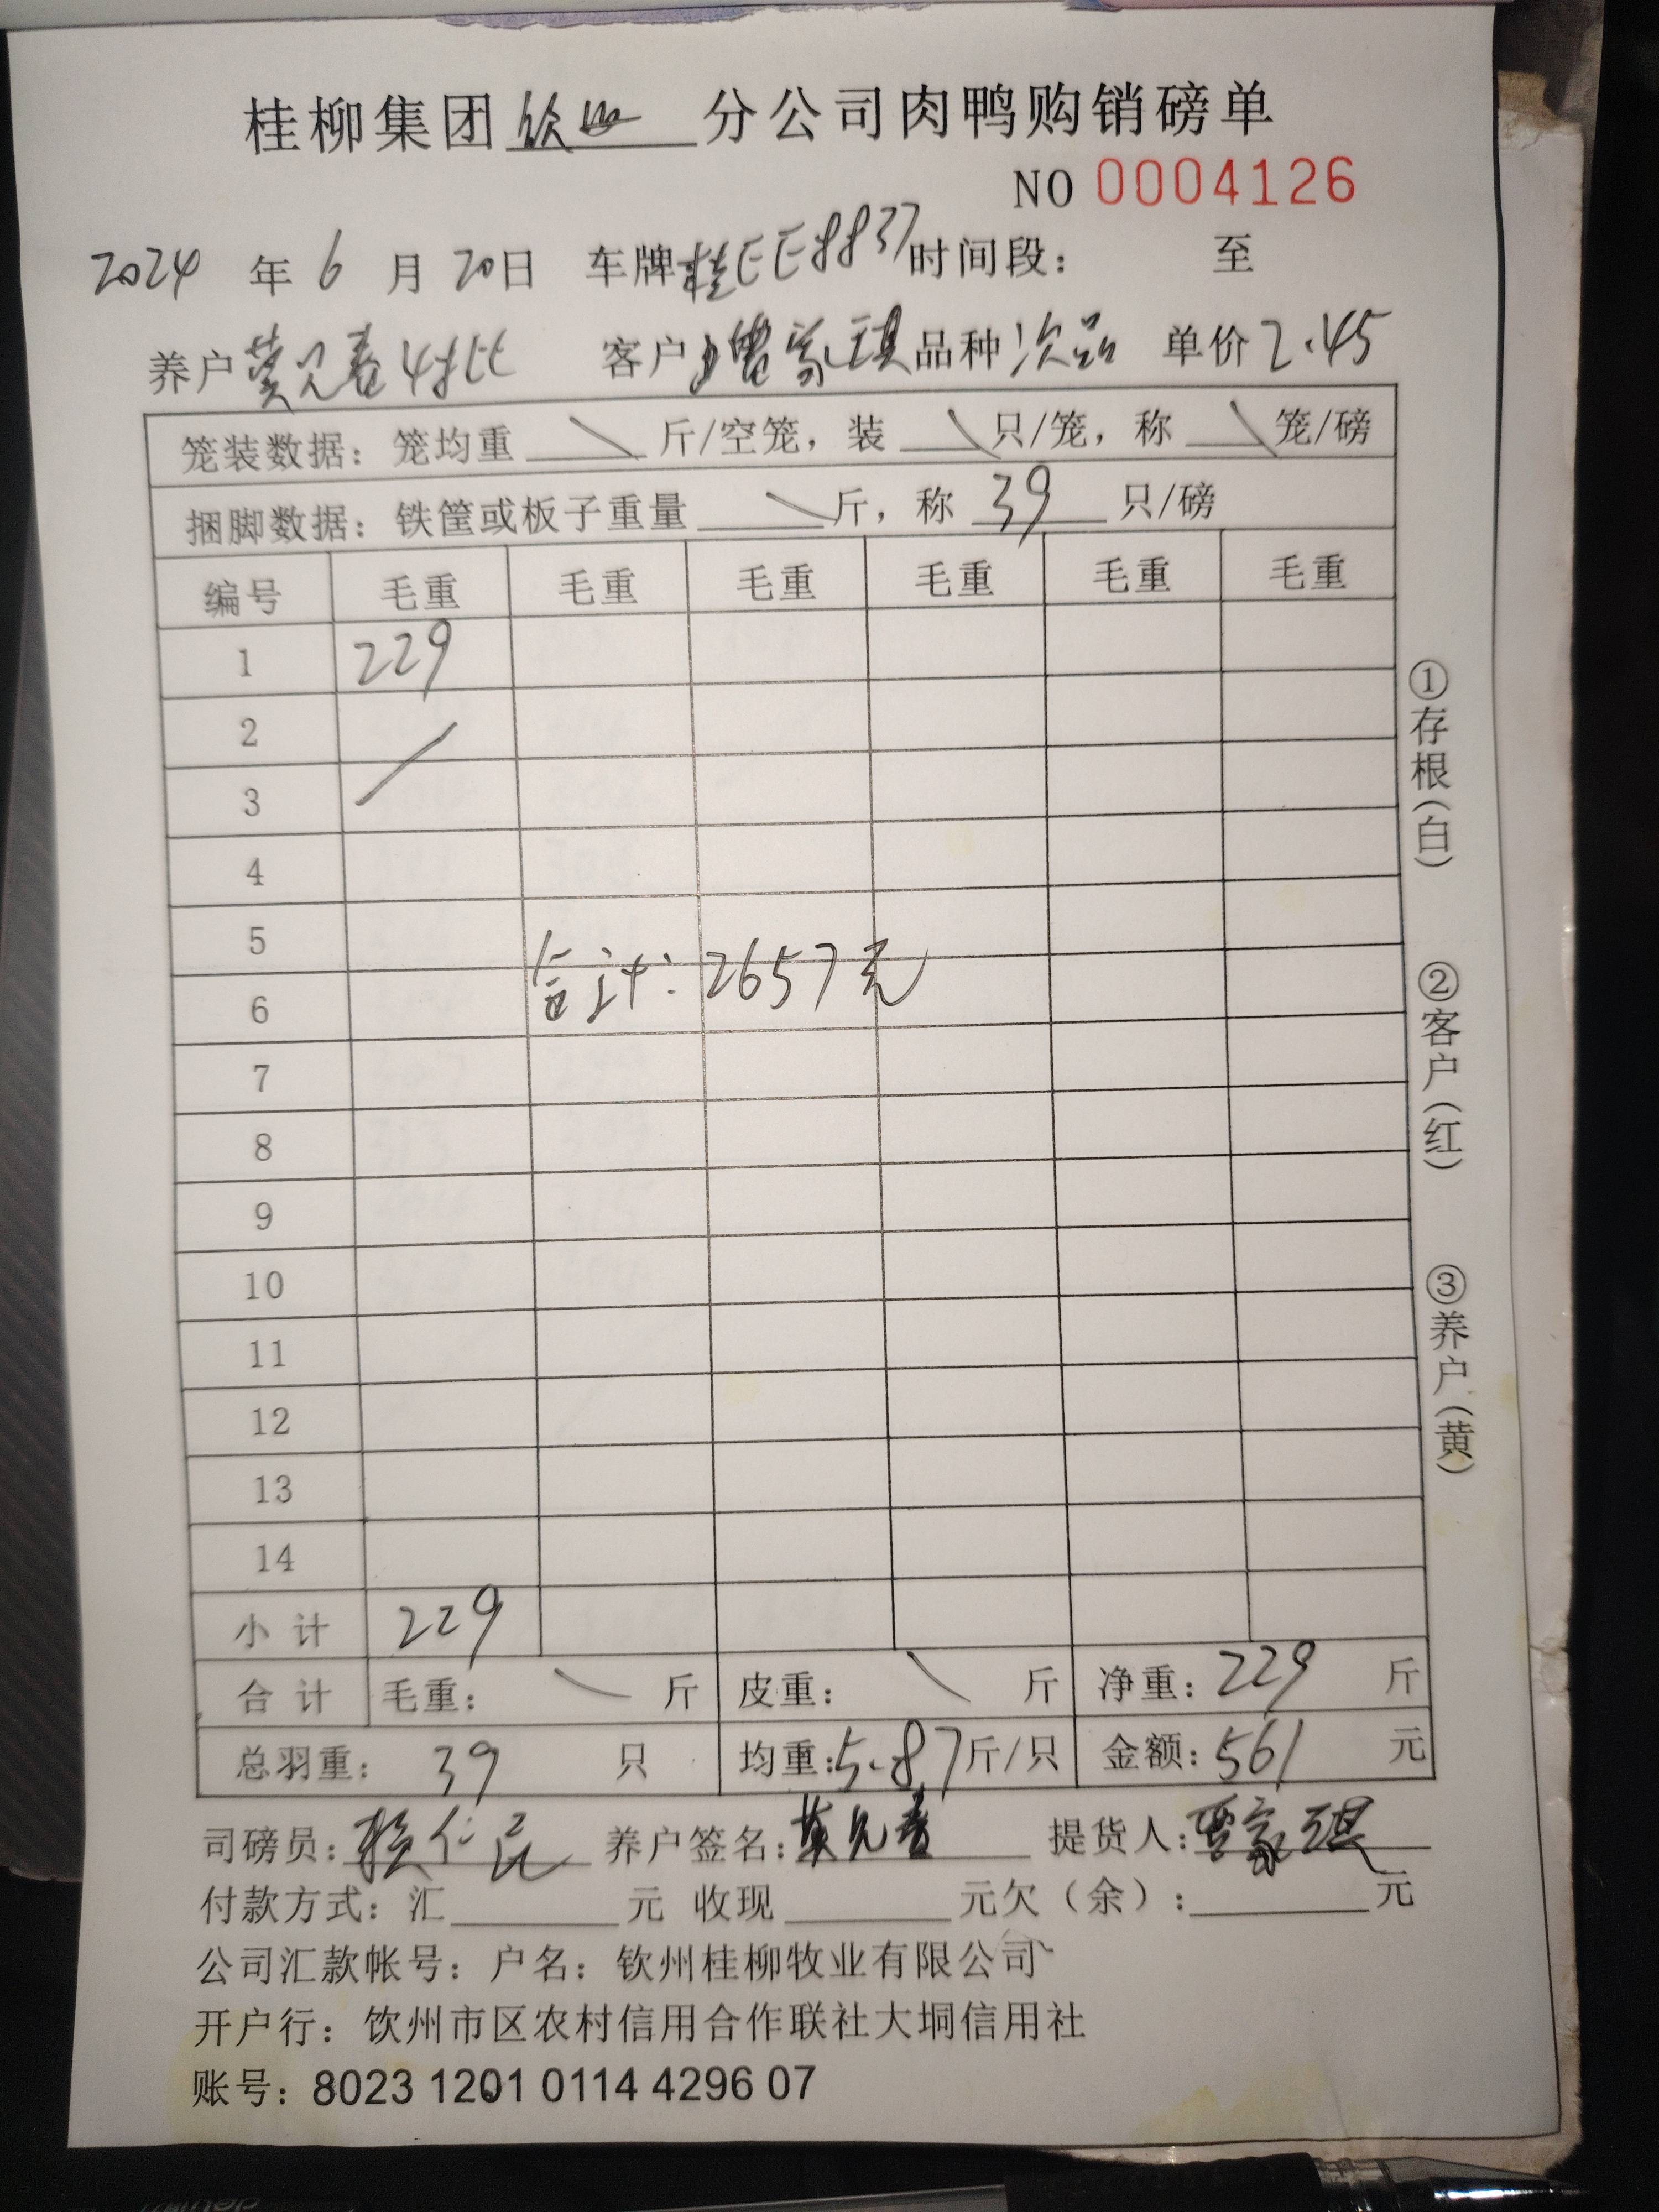 桂柳集团钦州分公司肉鸭购销磅单
NO 0004126
2024 年 6 月 20 日 车牌桂EE8837 时间段: 至
养户 莫元春4批 客户 曾家琪 品种 次品 单价 2.45
笼装数据: 笼均重 \ 斤/空笼, 装 \ 只/笼, 称 \ 笼/磅
捆脚数据: 铁筐或板子重量 \ 斤, 称 39 只/磅
编号 毛重 毛重 毛重 毛重 毛重 毛重
1 229
2 /
3
4
5
合计: 2657元
6
7
8
9
10
11
12
13
14
小计 229
合计 毛重: \ 斤 皮重: \ 斤 净重: 229 斤
总羽重: 39 只 均重: 5.87 斤/只 金额: 561 元
司磅员: 仁民 养户签名: 莫元春 提货人: 曾家琪
付款方式: 汇 元 收现 元欠(余): 元
公司汇款帐号: 户名: 钦州桂柳牧业有限公司
开户行: 钦州市区农村信用合作联社大垌信用社
账号: 8023 1201 0114 4296 07
①存根(白)
②客户(红)
③养户(黄)